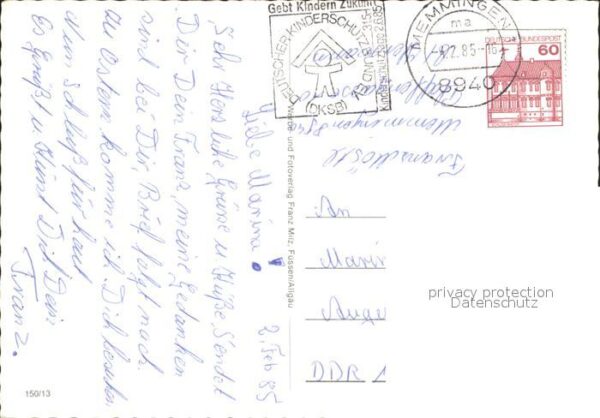 Gebt Kindern Zukunft
DEUTSCHER KINDERSCHUTZ
(DKSB)
MEMMINGEN
ma
-4.2.85-16
8940
DEUTSCHE BUNDESPOST
60
2. Feb 85
Liebe Marina!
Sehr Herzliche Grüße u Küße Sendet
Dir Dein Franz, meine Gedanken
sind bei Dir, Brief folgt nach.
Zu Ostern komme ich Dich besuchen
Nun Schluß für heut
Es Grüßt u Küßt Dich Dein
Franz.
Memmingen 8940
An
Marin
Auge
DDR 1
und Fotoverlag Franz Milz, Füssen/Allgäu
150/13
privacy protection
Datenschutz